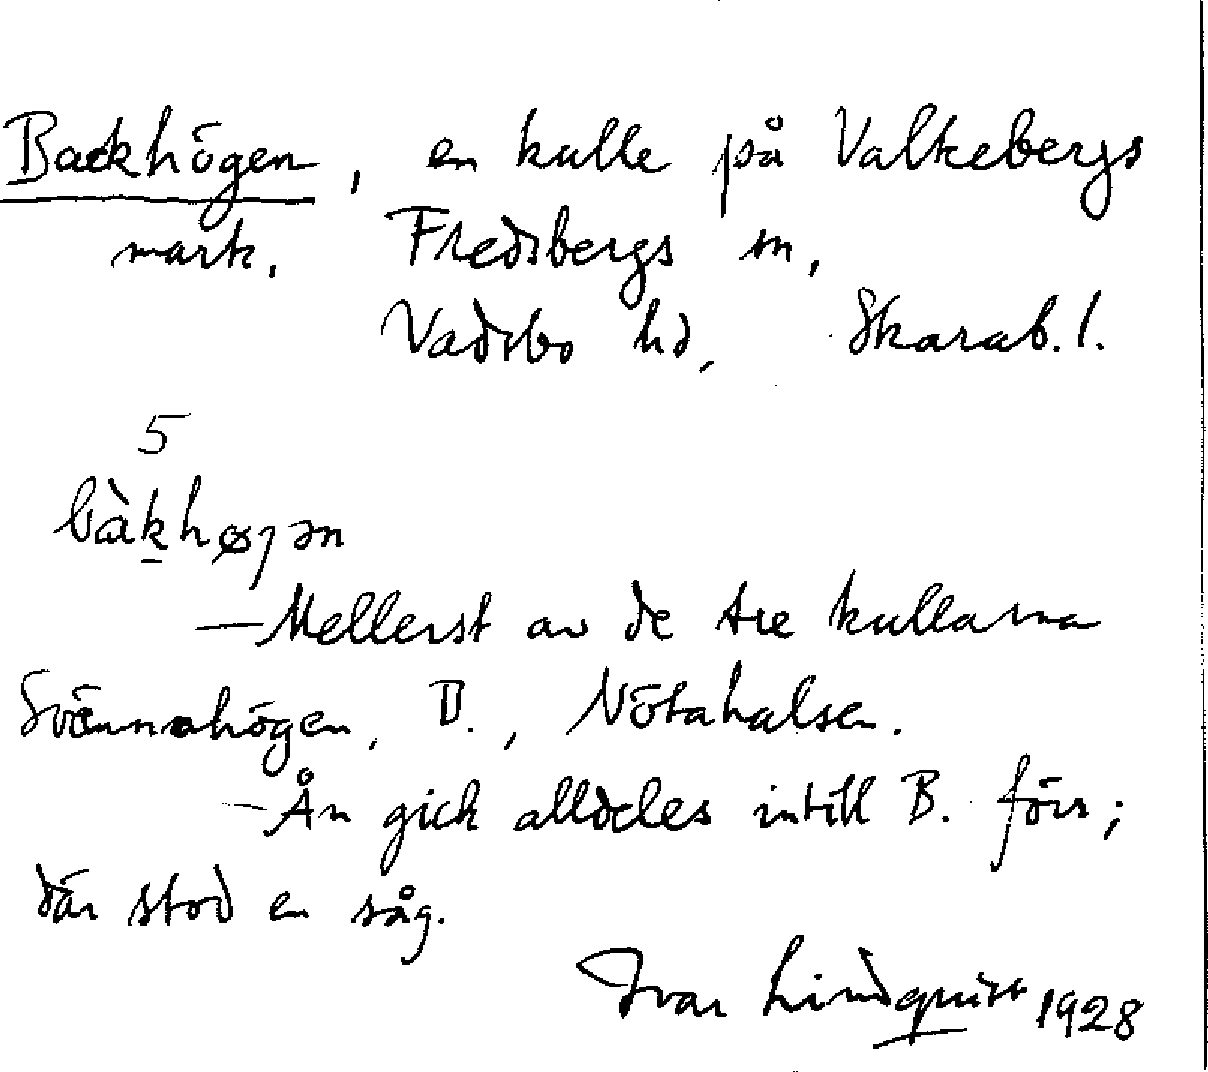 Backhögen, en kulle på Valkebergs
mark, Fredsbergs sn,
Vadsbo hd, Skarab. l.
5
bàk̠høȷən
— Mellerst av de tre kullarna
Svännahögen, B., Nötahalsen.
— Ån gick alldeles intill B. förr;
där stod en såg.
Ivar Lindquist 1928